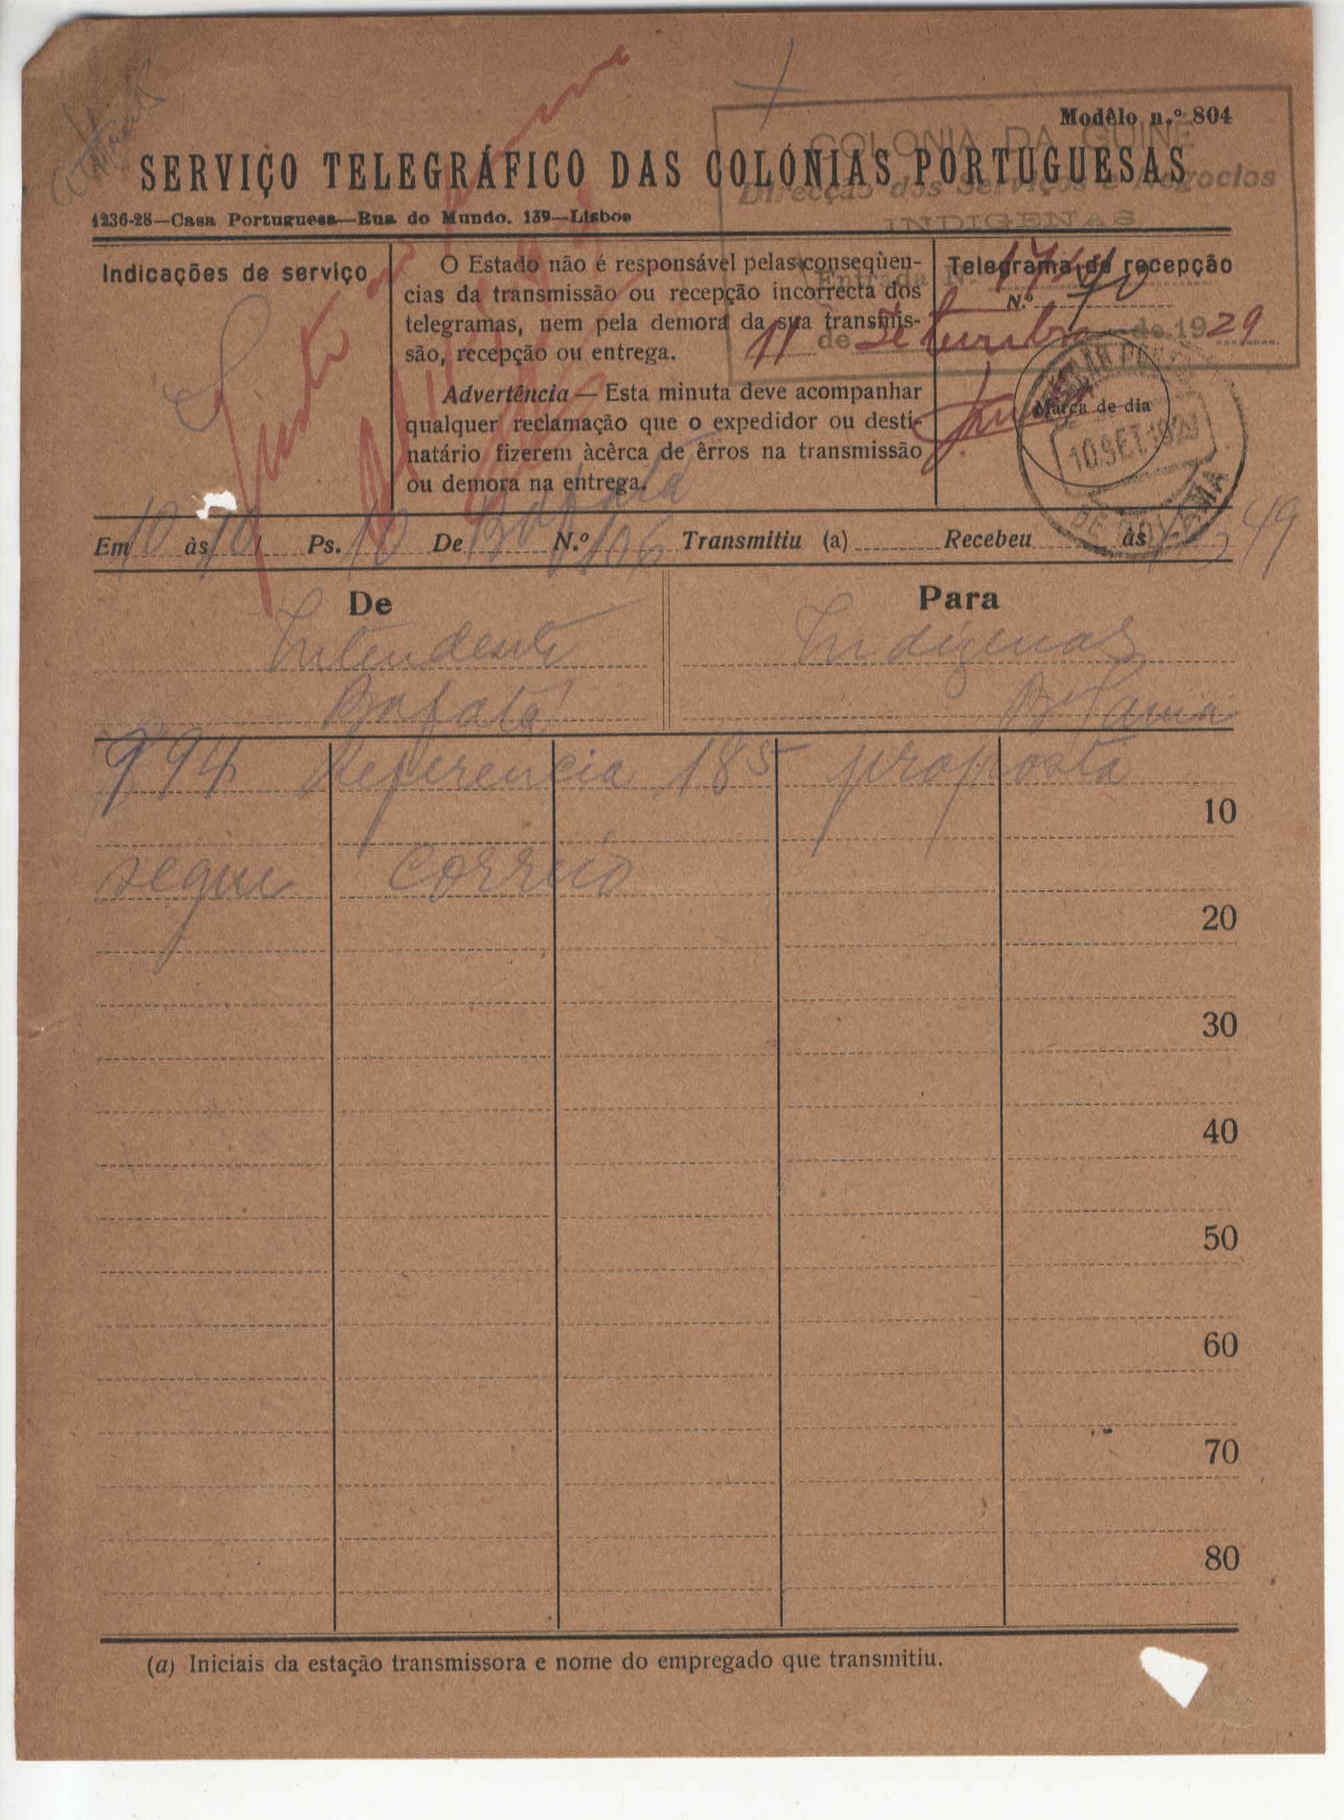 Modêlo n.º 804
COLONIA DA GUINÉ
SERVIÇO TELEGRÁFICO DAS COLÓNIAS PORTUGUESAS
Direcção dos Serviços e Negocios
INDIGENAS
1236-28—Casa Portuguesa—Rua do Mundo. 139—Lisboa
Indicações de serviço
O Estado não é responsável pelas conseqüen-
cias da transmissão ou recepção incorrecta dos
telegramas, nem pela demora da sua transmis-
são, recepção ou entrega.
Advertência — Esta minuta deve acompanhar
qualquer reclamação que o expedidor ou desti-
natário fizerem àcêrca de êrros na transmissão
ou demora na entrega.
Telegrama de recepção
N.º
11 de Setembro de 1929
Marca de dia
10.SET.1929
DE BOLAMA
Bafatá
Em 10 às 10 Ps. 10 De Bafatá N.º 106 Transmitiu (a) Recebeu às 49
De
Para
Intendente
Indigenas
Bafatá
Bolama
994 Referencia 185 proposta
10
segue correio
20
30
40
50
60
70
80
(a) Iniciais da estação transmissora e nome do empregado que transmitiu.